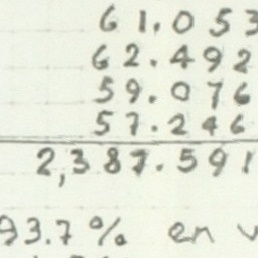 61.053
62.492
59.076
57.246
2,387.591
93.7% en